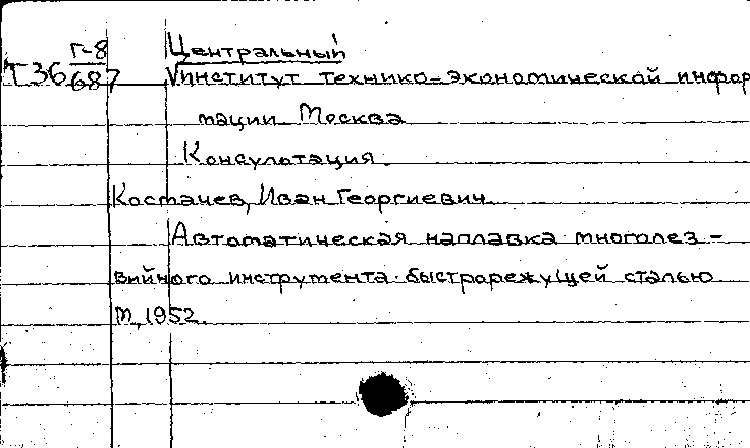 Г-8 Центральный
Т36 687 институт технико-экономической инфор
мации Москва
Консультация.
Костачев, Иван Георгиевич
Автоматическая наплавка многолез-
вийного инструмента быстрорежущей сталью
М, 1952.